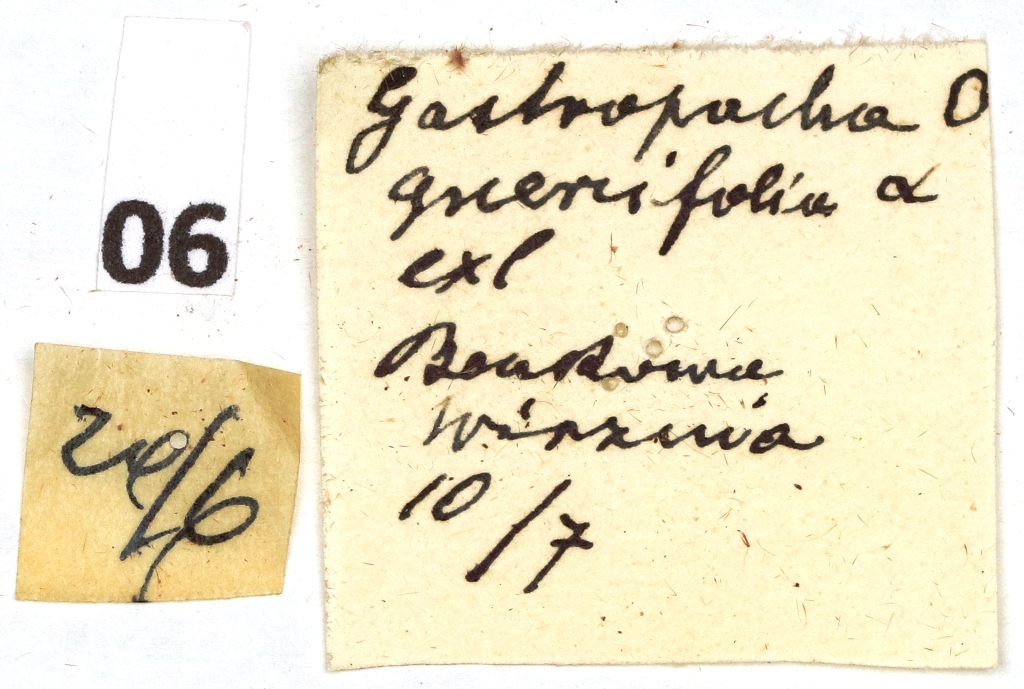 06
20/6
Gastropacha O
quercifolia α
exl
10/7